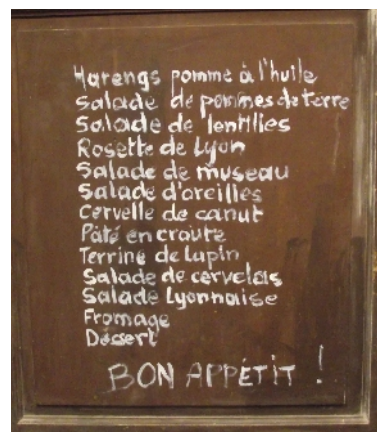 Harengs pomme à l'huile
Salade de pommes de terre
Salade de lentilles
Rosette de Lyon
Salade de museau
Salade d'oreilles
Cervelle de canut
Pâté en croute
Terrine de lapin
Salade de cervelas
Salade Lyonnaise
Fromage
Déssert
BON APPÉTIT !